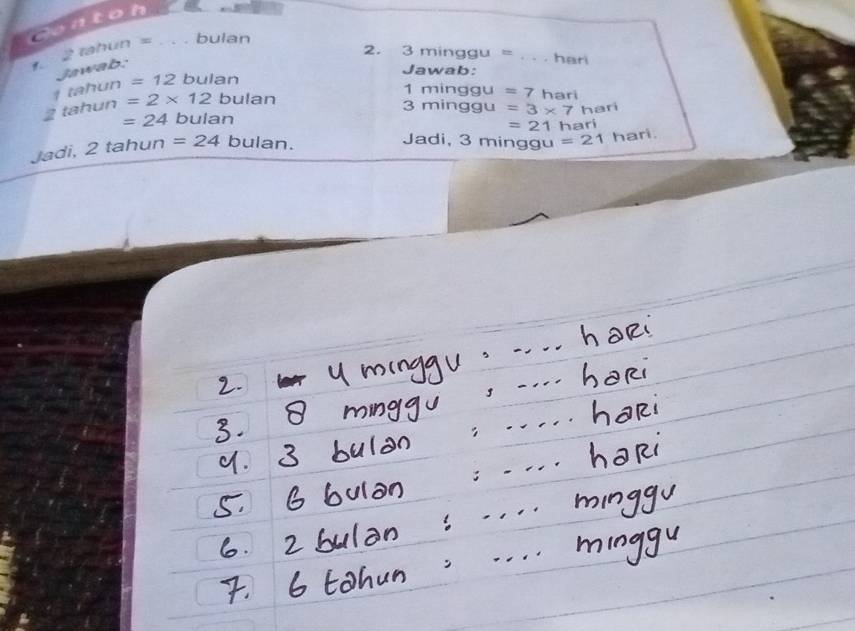 Contoh
1. 2 tahun = . . . bulan
Jawab:
1 tahun = 12 bulan
2 tahun = 2 × 12 bulan
= 24 bulan
Jadi, 2 tahun = 24 bulan.
2. 3 minggu = . . . hari
Jawab:
1 minggu = 7 hari
3 minggu = 3 × 7 hari
= 21 hari
Jadi, 3 minggu = 21 hari.
2. 4 minggu : .... hari
3. 8 minggu : .... hari
4. 3 bulan : ..... hari
5. 6 bulan : .... hari
6. 2 bulan : .... minggu
7. 6 tahun : .... minggu